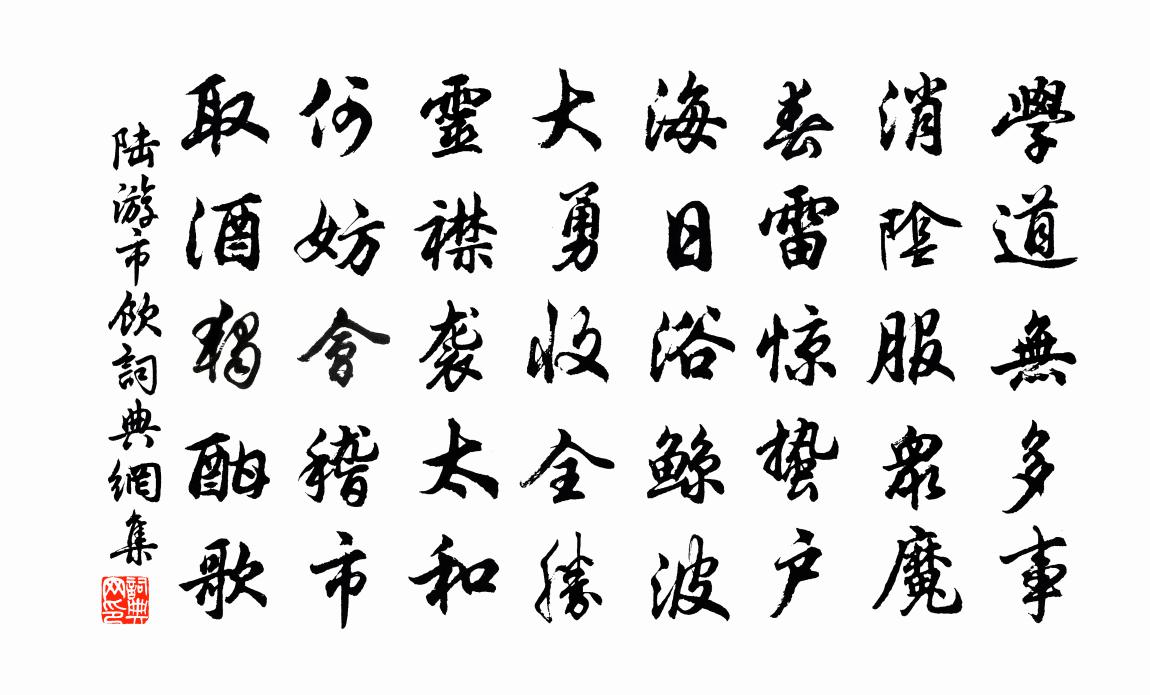 學道無多事
消陰服眾魔
春雷惊蛰户
海日浴鲸波
大勇收全勝
靈襟袭太和
何妨會稽市
取酒獨酣歌
陆游市饮詞典網集
詞典网印